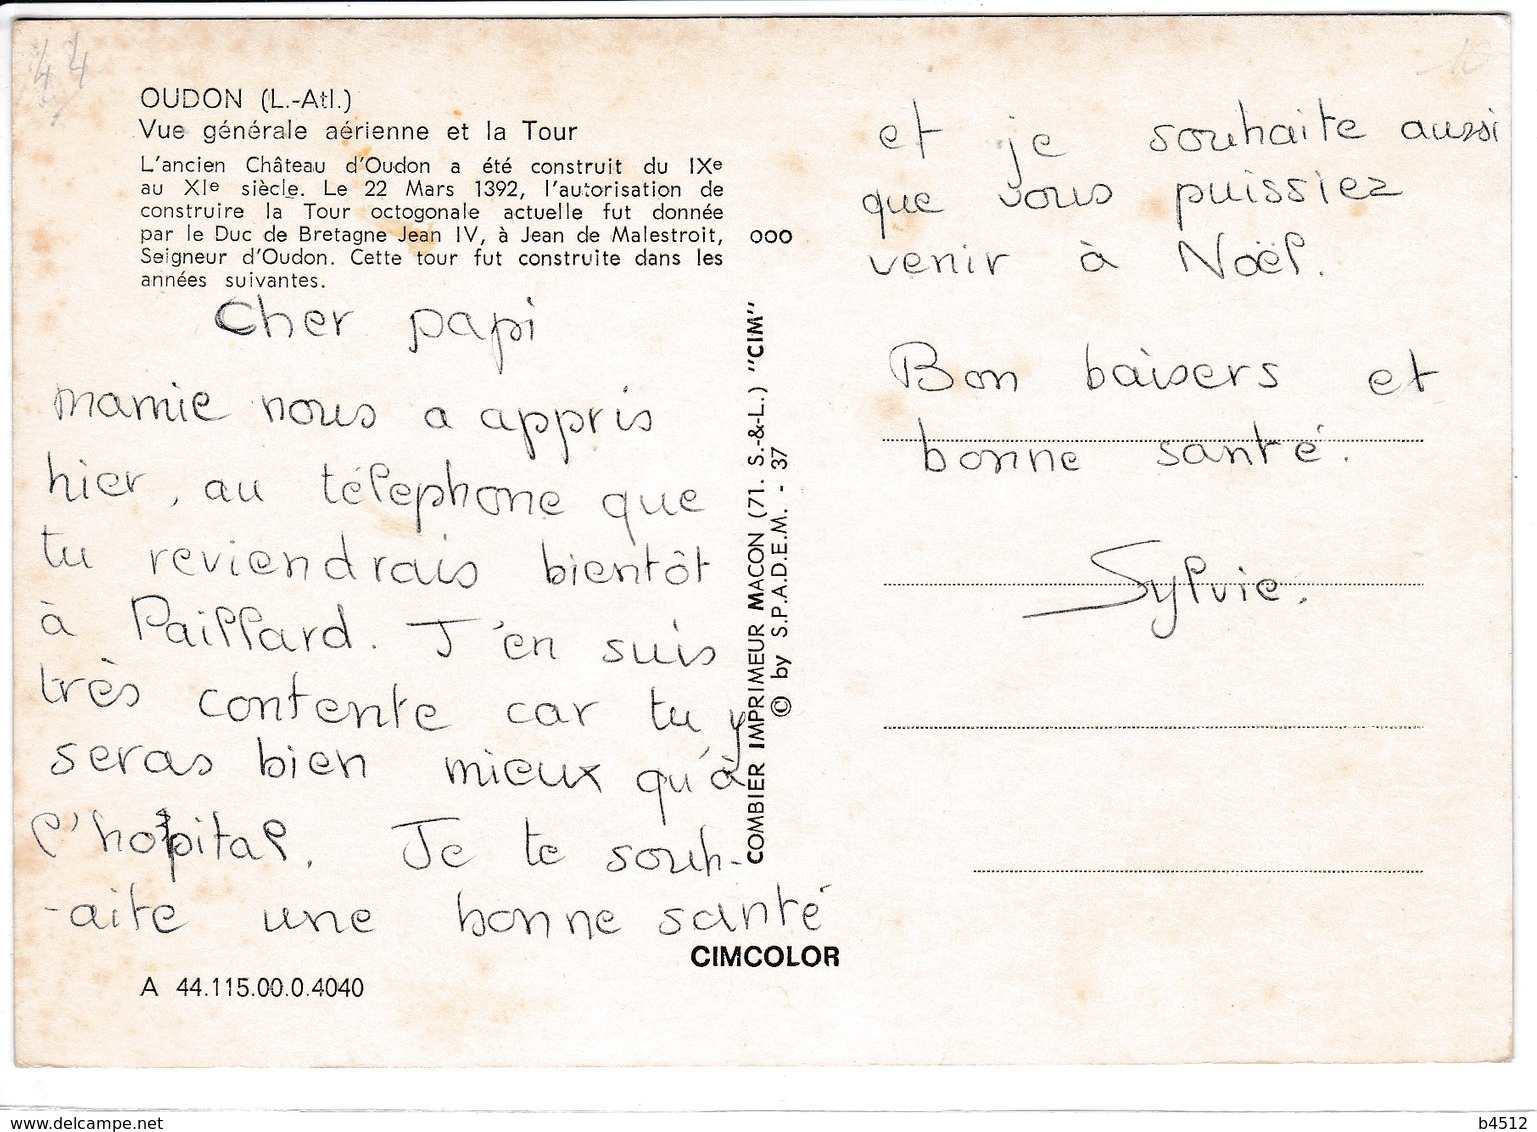 44
10
OUDON (L.-Atl.)
Vue générale aérienne et la Tour
L'ancien Château d'Oudon a été construit du IXe
au XIe siècle. Le 22 Mars 1392, l'autorisation de
construire la Tour octogonale actuelle fut donnée
par le Duc de Bretagne Jean IV, à Jean de Malestroit,
Seigneur d'Oudon. Cette tour fut construite dans les
années suivantes.
Cher papi
mamie nous a appris
hier, au téléphone que
tu reviendrais bientôt
à Paillard. J'en suis
très contente car tu y
seras bien mieux qu'à
l'hopital. Je te souh-
-aite une bonne santé
A 44.115.00.0.4040
000
COMBIER IMPRIMEUR MACON (71. S.-&-L.) "CIM"
© by S.P.A.D.E.M. - 37
CIMCOLOR
et je souhaite aussi
que vous puissiez
venir à Noël.
Bon baisers et
bonne santé.
Sylvie.
www.delcampe.net
b4512